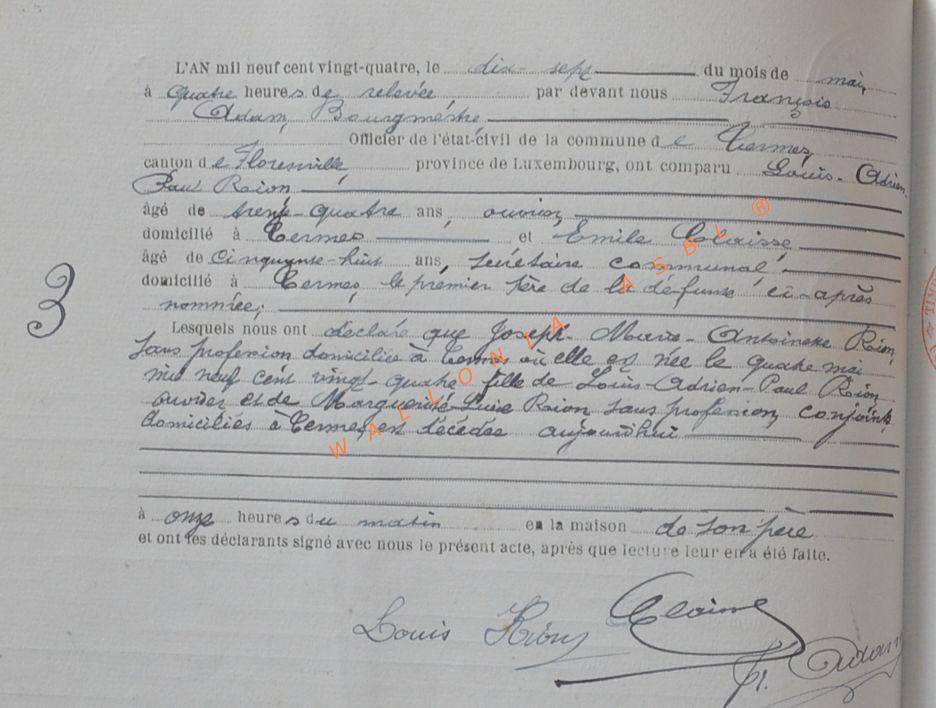 L'AN mil neuf cent vingt-quatre, le dix-sept du mois de mai
à quatre heures de relevée, par devant nous François
Adam, Bourgmestre
Officier de l'état-civil de la commune de Termes,
canton de Florenville, province de Luxembourg, ont comparu Louis-Adrien
Paul Raion
âgé de trente-quatre ans, ouvrier,
domicilié à Termes et Emile Claisse
âgé de cinquante-huit ans, secrétaire communal,
domicilié à Termes, le premier père de la défunte ci-après
nommée;
Lesquels nous ont déclaré que Joseph-Marie-Antoinette Raion,
sans profession domiciliée à Termes où elle est née le quatre mai
mil neuf cent vingt-quatre fille de Louis-Adrien-Paul Raion
ouvrier et de Marguerite-Lucie Raion sans profession, conjoints
domiciliés à Termes, est décédée aujourd'hui
à onze heures du matin en la maison de son père
et ont les déclarants signé avec nous le présent acte, après que lecture leur en a été faite.
3
WALLONIA ASBL ®
Louis
Fr. Adam